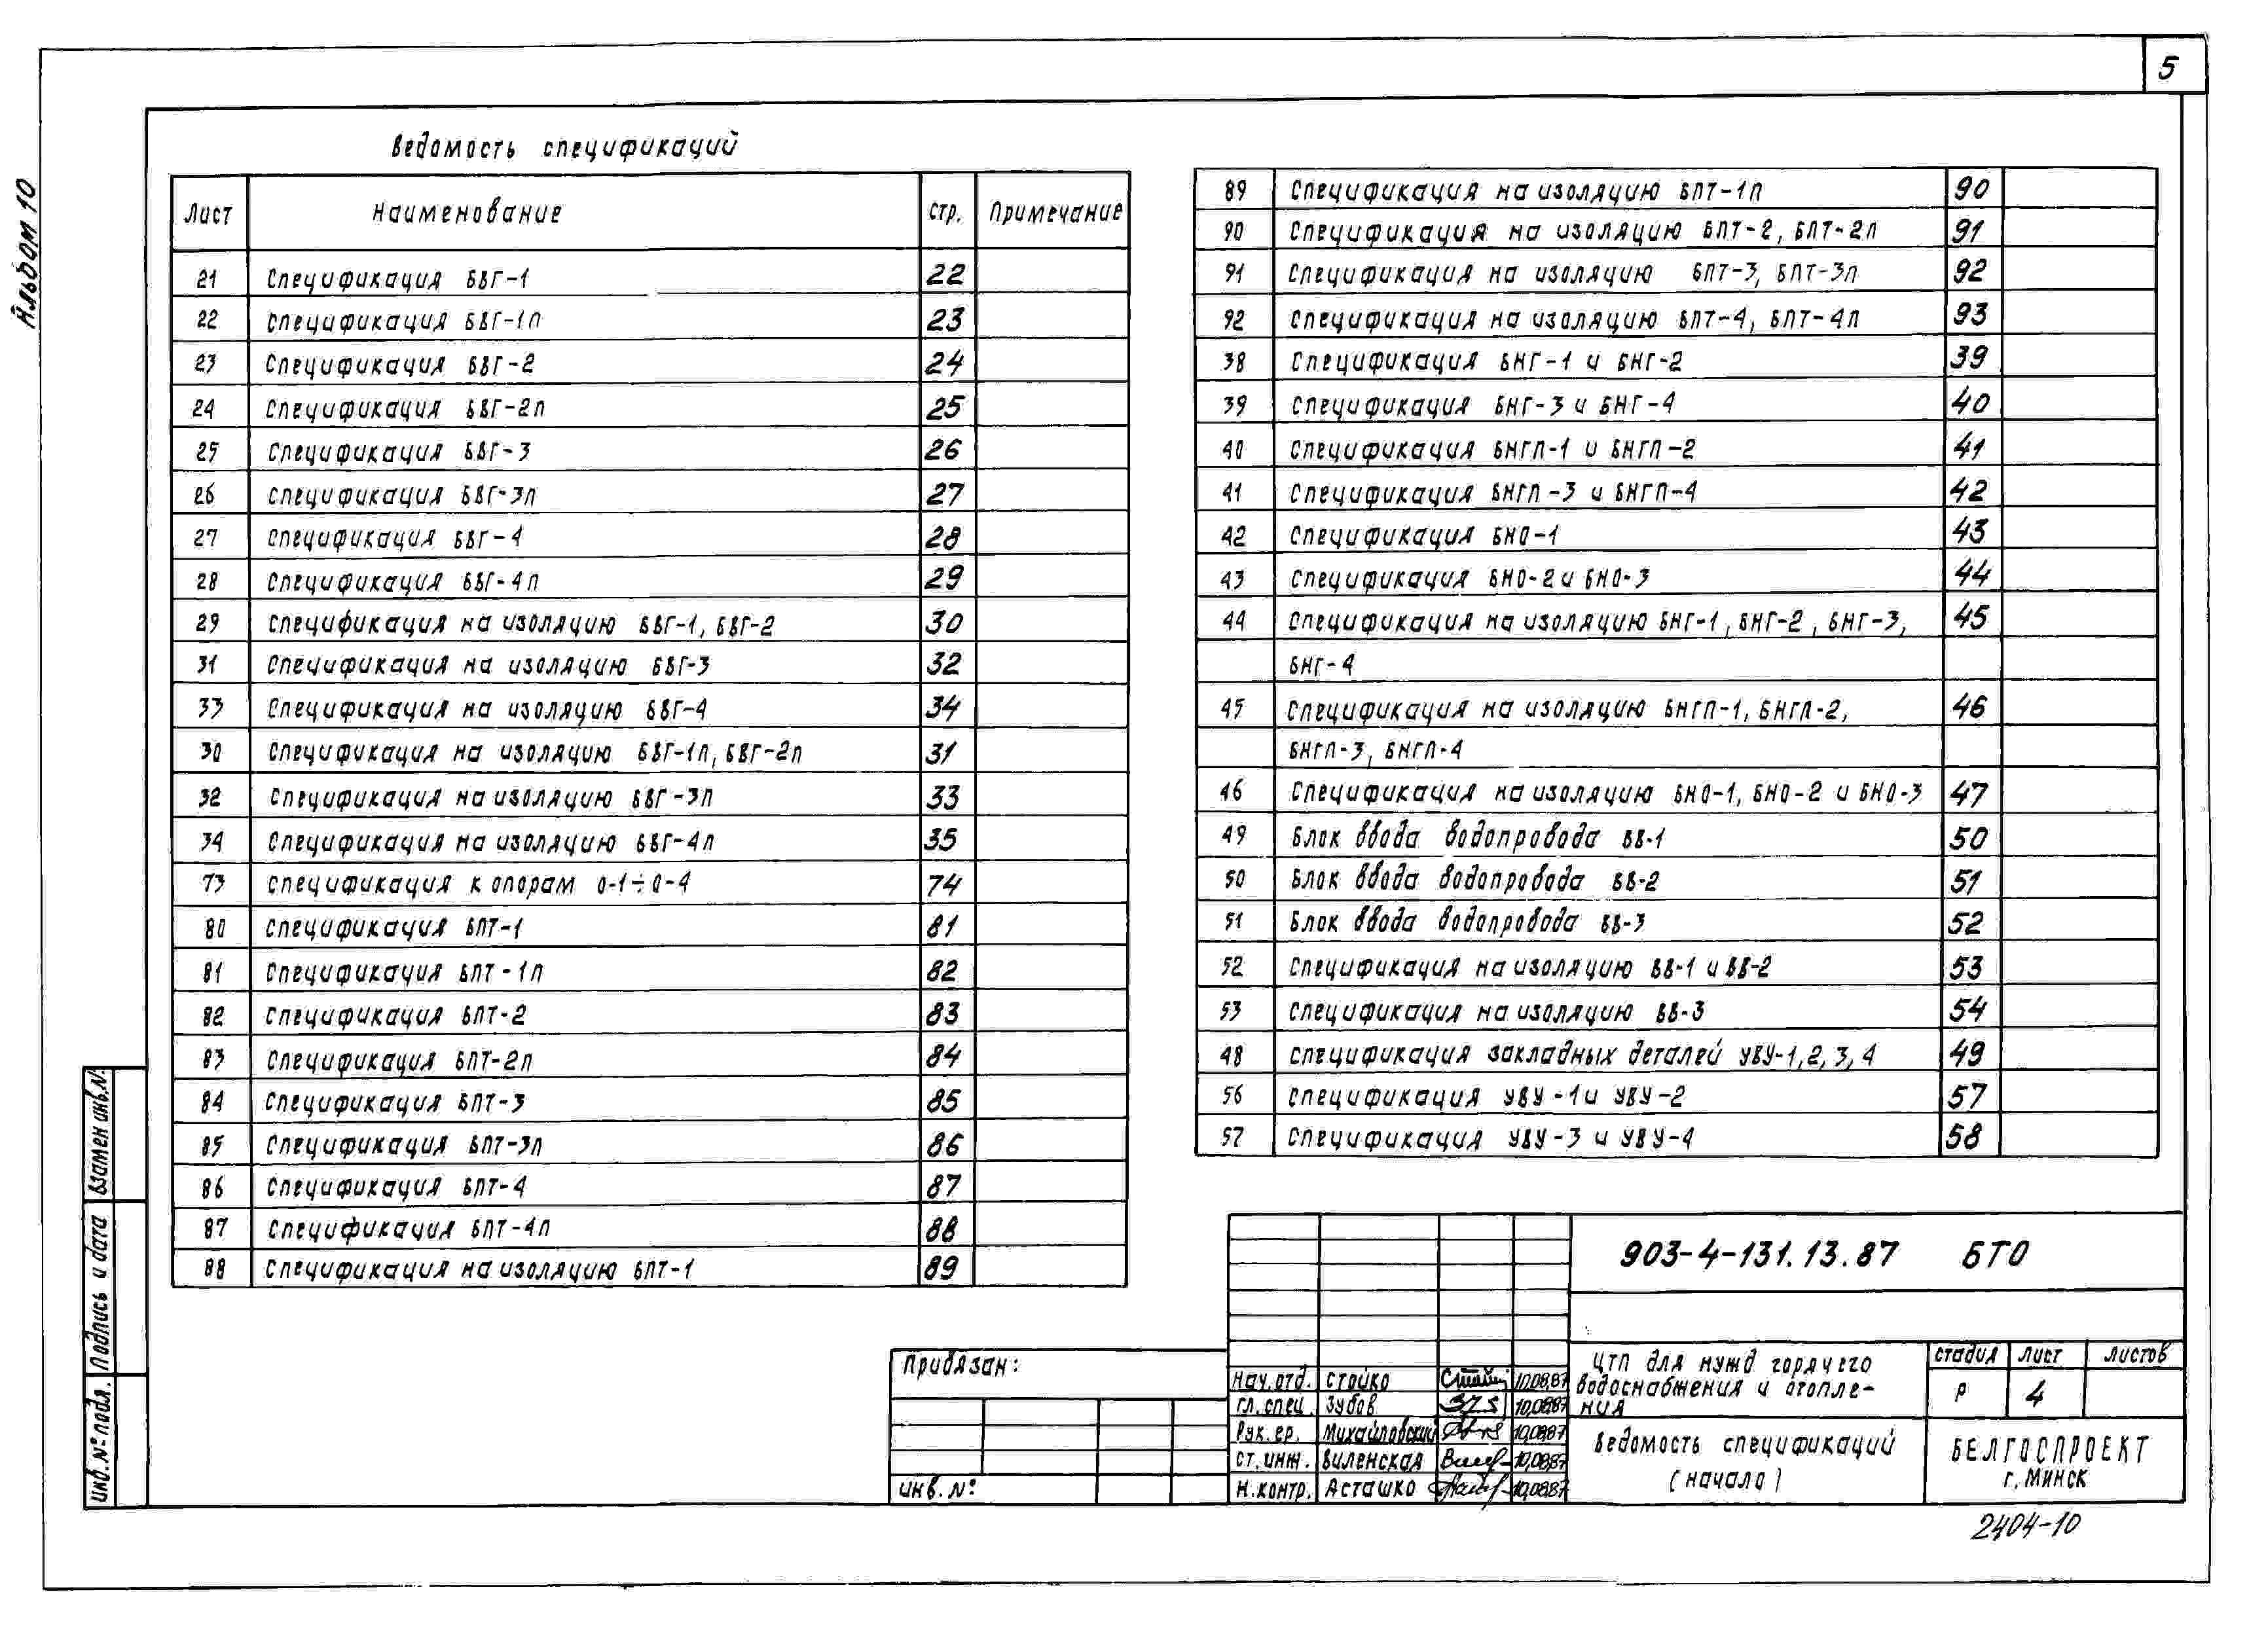 5
Альбом 10
Ведомость спецификаций
Лист Наименование Стр. Примечание
21 Спецификация БВГ-1 22
22 Спецификация БВГ-1п 23
23 Спецификация БВГ-2 24
24 Спецификация БВГ-2п 25
25 Спецификация БВГ-3 26
26 Спецификация БВГ-3п 27
27 Спецификация БВГ-4 28
28 Спецификация БВГ-4п 29
29 Спецификация на изоляцию БВГ-1, БВГ-2 30
31 Спецификация на изоляцию БВГ-3 32
33 Спецификация на изоляцию БВГ-4 34
30 Спецификация на изоляцию БВГ-1п, БВГ-2п 31
32 Спецификация на изоляцию БВГ-3п 33
34 Спецификация на изоляцию БВГ-4п 35
73 Спецификация к опорам О-1÷О-4 74
80 Спецификация БПТ-1 81
81 Спецификация БПТ-1п 82
82 Спецификация БПТ-2 83
83 Спецификация БПТ-2п 84
84 Спецификация БПТ-3 85
85 Спецификация БПТ-3п 86
86 Спецификация БПТ-4 87
87 Спецификация БПТ-4п 88
88 Спецификация на изоляцию БПТ-1 89
89 Спецификация на изоляцию БПТ-1п 90
90 Спецификация на изоляцию БПТ-2, БПТ-2п 91
91 Спецификация на изоляцию БПТ-3, БПТ-3п 92
92 Спецификация на изоляцию БПТ-4, БПТ-4п 93
38 Спецификация БНГ-1 и БНГ-2 39
39 Спецификация БНГ-3 и БНГ-4 40
40 Спецификация БНГП-1 и БНГП-2 41
41 Спецификация БНГП-3 и БНГП-4 42
42 Спецификация БНО-1 43
43 Спецификация БНО-2 и БНО-3 44
44 Спецификация на изоляцию БНГ-1, БНГ-2, БНГ-3, 45
БНГ-4
45 Спецификация на изоляцию БНГП-1, БНГП-2, 46
БНГП-3, БНГП-4
46 Спецификация на изоляцию БНО-1, БНО-2 и БНО-3 47
49 Блок ввода водопровода ВВ-1 50
50 Блок ввода водопровода ВВ-2 51
51 Блок ввода водопровода ВВ-3 52
52 Спецификация на изоляцию ВВ-1 и ВВ-2 53
53 Спецификация на изоляцию ВВ-3 54
48 Спецификация закладных деталей УВУ-1,2,3,4 49
56 Спецификация УВУ-1 и УВУ-2 57
57 Спецификация УВУ-3 и УВУ-4 58
Взамен инв.№
Подпись и дата
Инв.№ подл.
Привязан:
Инв.№
903-4-131.13.87 БТО
Нач.отд. Стойко 10.08.87
Гл.спец. Зубов 10.08.87
Рук.гр. Михайловский 10.08.87
Ст.инж. Виленская 10.08.87
Н.контр. Асташко 10.08.87
ЦТП для нужд горячего
водоснабжения и отопле-
ния
Стадия Лист Листов
Р 4
Ведомость спецификаций
(начало)
БЕЛГОСПРОЕКТ
г. Минск
2404-10